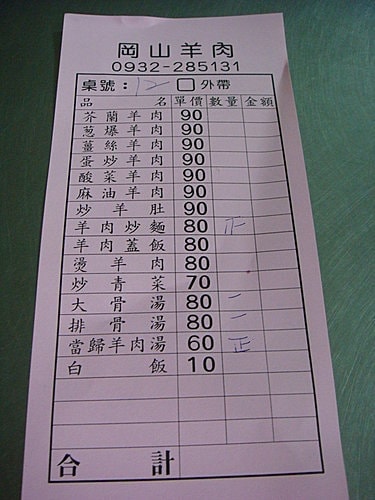 岡山羊肉
0932-285131
桌號：12 □外帶
品名 單價 數量 金額
芥蘭羊肉 90
蔥爆羊肉 90
薑絲羊肉 90
蛋炒羊肉 90
酸菜羊肉 90
麻油羊肉 90
炒羊肚 90
羊肉炒麵 80
羊肉蓋飯 80
燙羊肉 80
炒青菜 70
大骨湯 80 一
排骨湯 80 一
當歸羊肉湯 60 正
白飯 10
合計